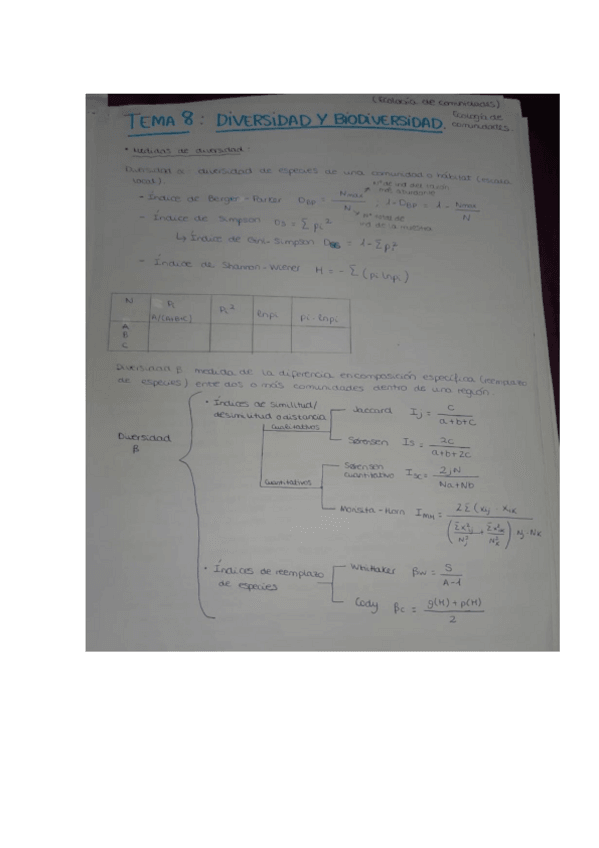 (Ecología de comunidades)
TEMA 8: DIVERSIDAD Y BIODIVERSIDAD.
Ecología de comunidades.
• Medidas de diversidad:
Diversidad α: diversidad de especies de una comunidad o hábitat (escala
local).
Nº de ind del taxón más abundante
- Índice de Berger-Parker D_BP = Nmax / N ; 1-D_BP = 1 - Nmax / N
Nº total de ind de la muestra
- Índice de Simpson Ds = Σ pi²
↳ Índice de Gini-Simpson D = 1-Σpi²
- Índice de Shannon-Wiener H = - Σ (pi lnpi)
N Pi A/(A+B+C) Pi² lnpi pi·lnpi
A
B
C
Diversidad β: medida de la diferencia en composición específica (reemplazo
de especies) entre dos o más comunidades dentro de una región.
Diversidad β
• Índices de similitud/
desimilitud o distancia
Cualitativos
Jaccard Ij = c / a+b+c
Sørensen Is = 2c / a+b+2c
Cuantitativos
Sørensen cuantitativo Isc = 2jN / Na+Nb
Morisita-Horn I_MH = 2Σ(xij · xik / (Σx²ij / N²j + Σx²ik / N²k) Nj·Nk
• Índices de reemplazo
de especies
Whittaker βw = S / A-1
Cody βc = g(H)+p(H) / 2